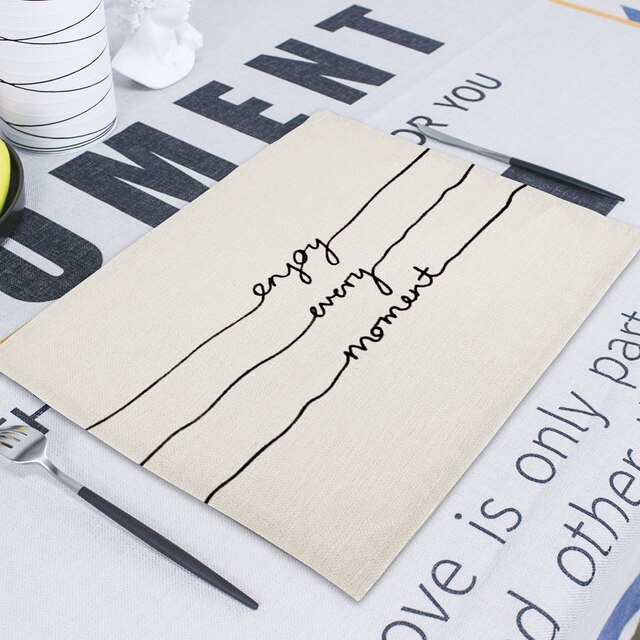 UMENT
OR YOU
enjoy
every
moment
ove is only part
d other